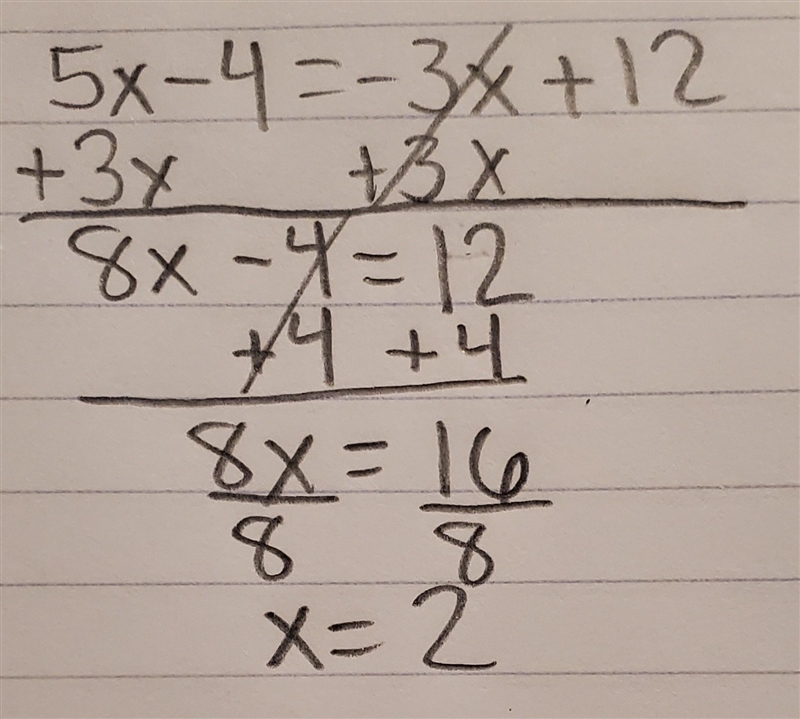 5x-4=-3x+12
+3x +3x
8x-4=12
+4 +4
8x=16
8 8
x=2